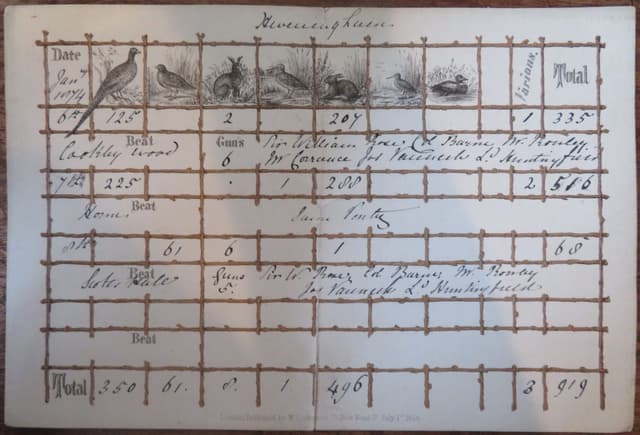 Heveningham
Date Various. Total
Jany
1874
6th 125 2 207 1 335
Beat Guns Sir William Rose, Col Barne, Mr. Rowley
Cookley Wood 6 Mr Corrance Jos Vanneck Ld Huntingfield
7th 225 . 1 288 2 516
Beat
Home Same Party
8th 61 6 1 68
Beat Guns Sir W. Rose, Col Barne, Mr. Rowley
5. Jos Vanneck Ld Huntingfield
Beat
Total 350 61. 8. 1 496 3 919